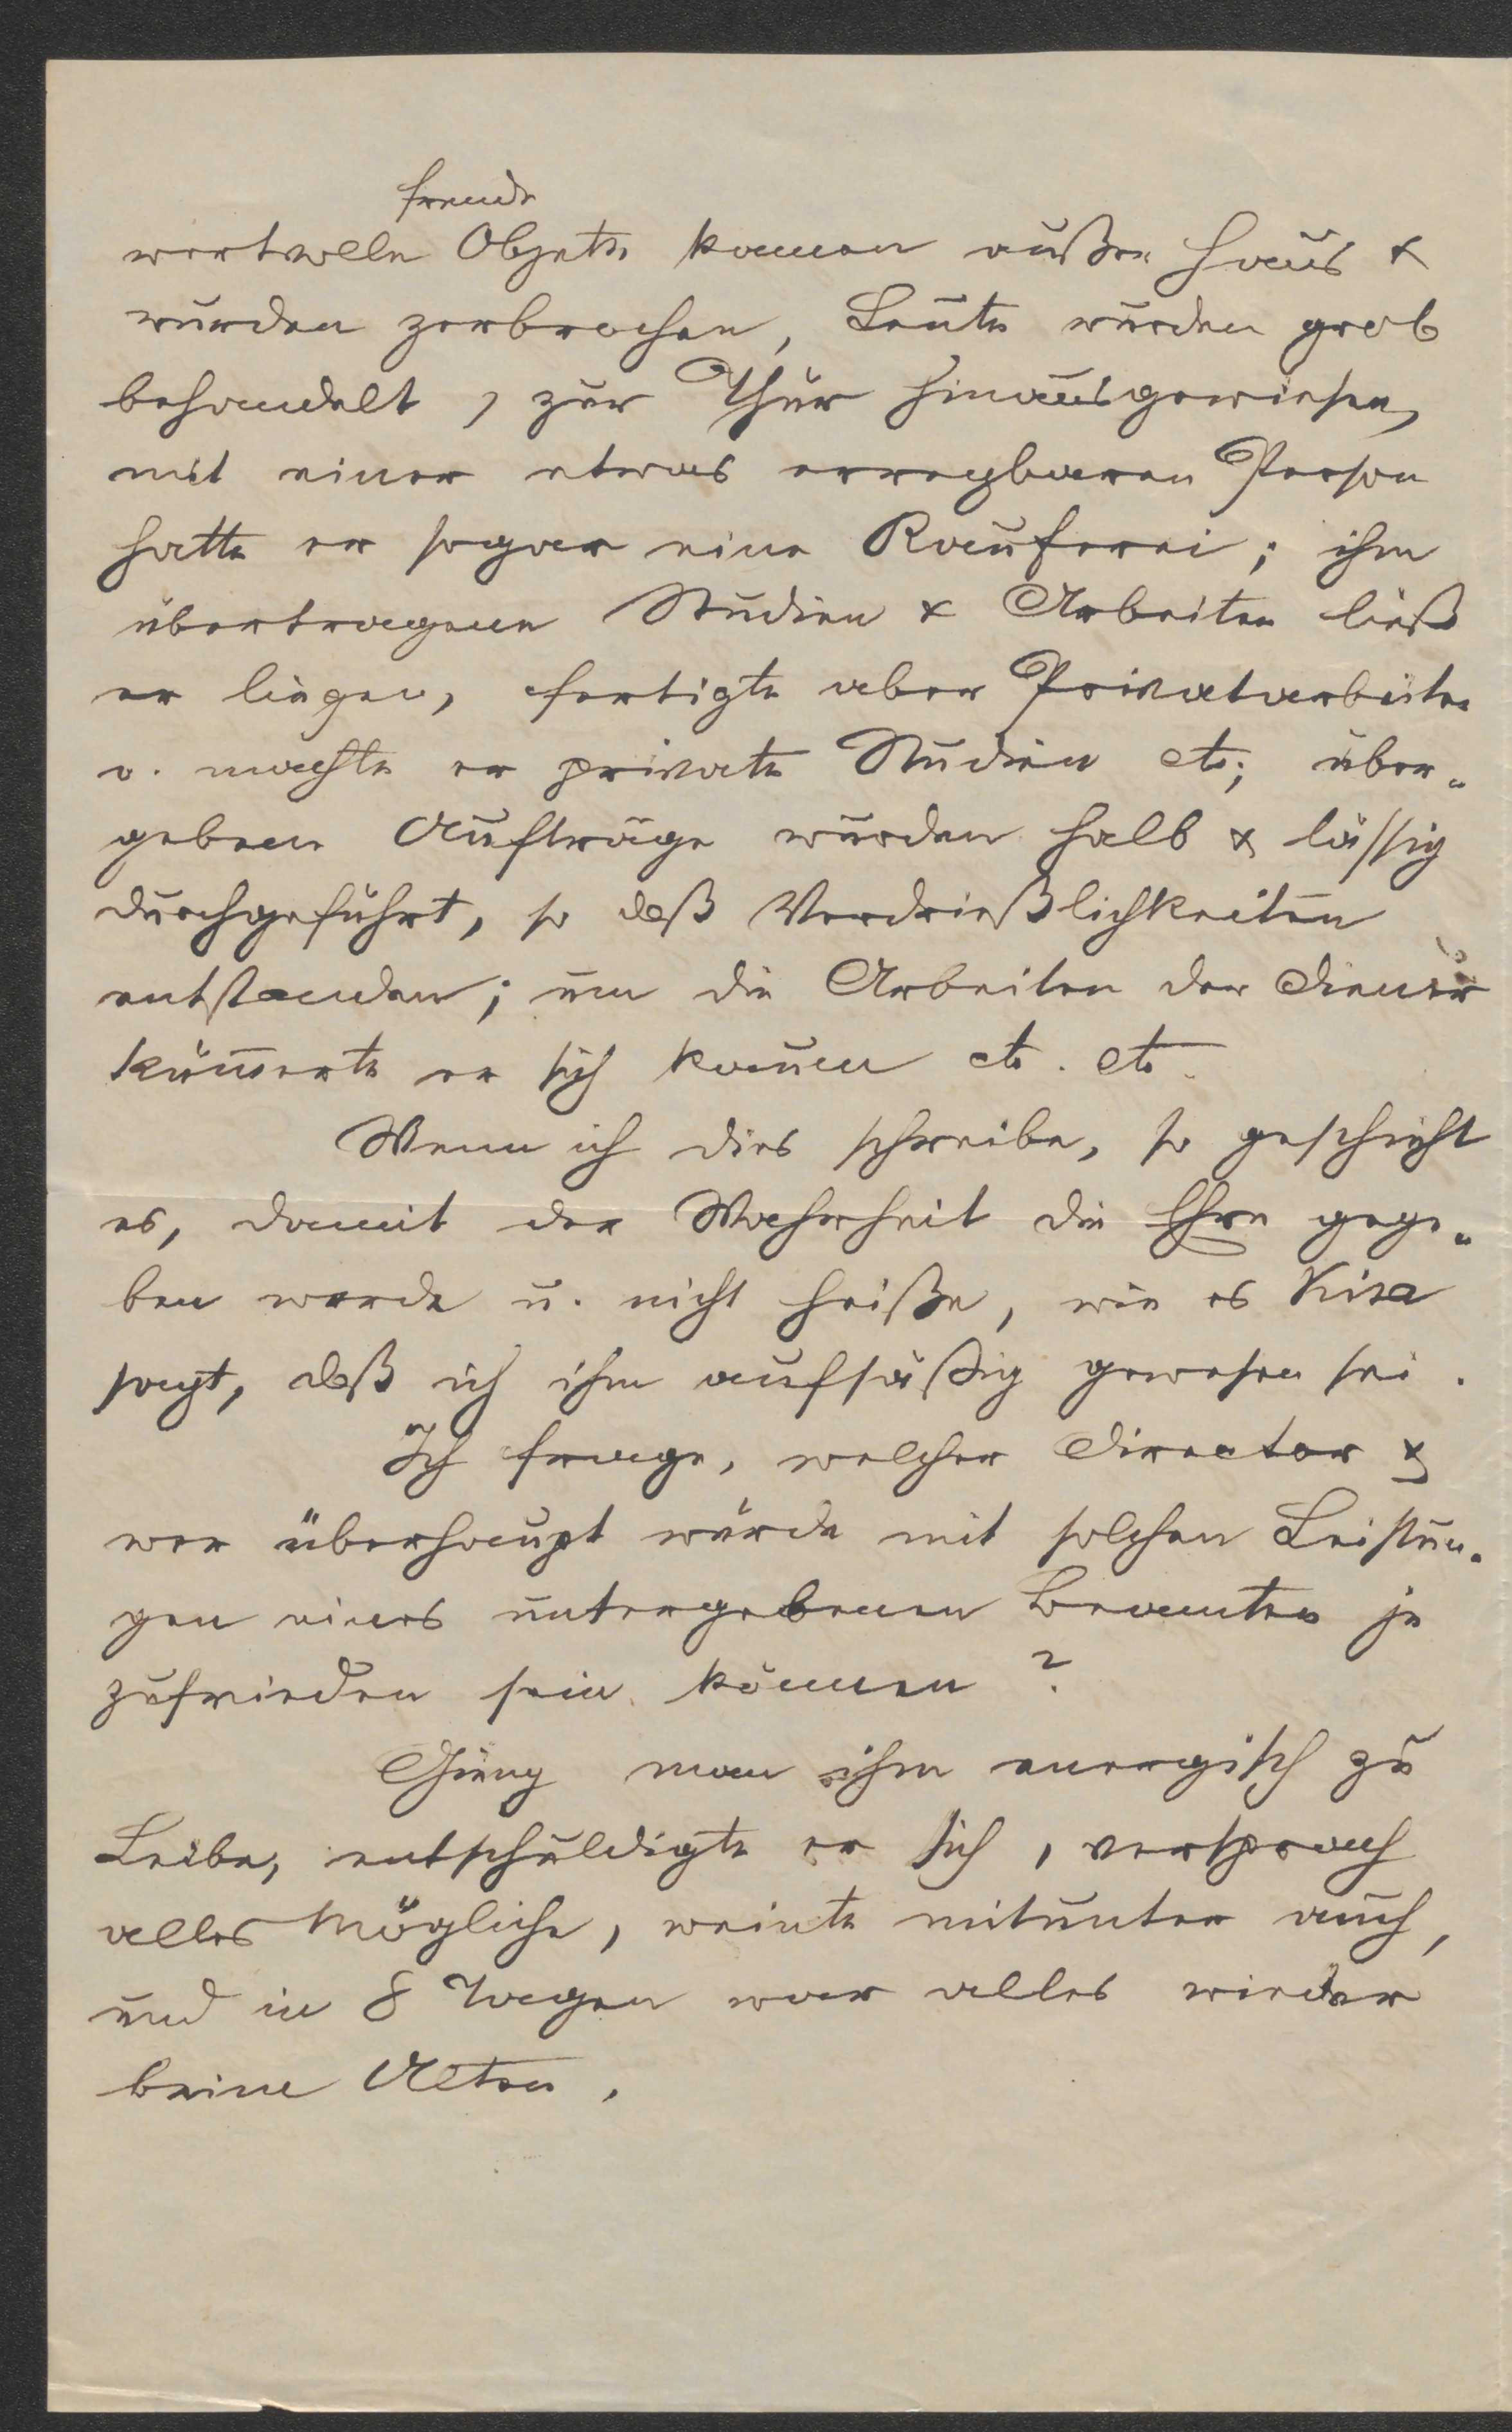 fremde
wertvolle Objekte kamen außer Haus &
wurden zerbrochen, Leute wurden grob
behandelt, zur Thür hinausgewiesen,
mit einer etwas erregbaren Person
hatte er sogar eine Rauferei; ihm
übertragene Studien & Arbeiten ließ
er liegen, fertigte aber Privatarbeiten
o. machte er private Studien etc; über„
gebene Aufträge wurden halb & lässig
durchgeführt, so daß Verdrießlichkeiten
entstanden; um die Arbeiten der Diener
kümerte er sich kaum etc. etc.
Wenn ich dies schreibe, so geschieht
es, damit der Wahrheit die Ehre gege„
ben werde u. nicht heiße, wie es Kisa
sagt, daß ich ihm aufsäßig gewesen sei.
Ich frage, welcher Director &
wer überhaupt würde mit solchen Leistun„
gen eines untergebenen Beamten je
zufrieden sein können?
Gieng man ihm energisch zu
Leibe, entschuldigte er sich, versprach
alles Mögliche, weinte mitunter auch,
und in 8 Tagen war alles wieder
beim Alten.